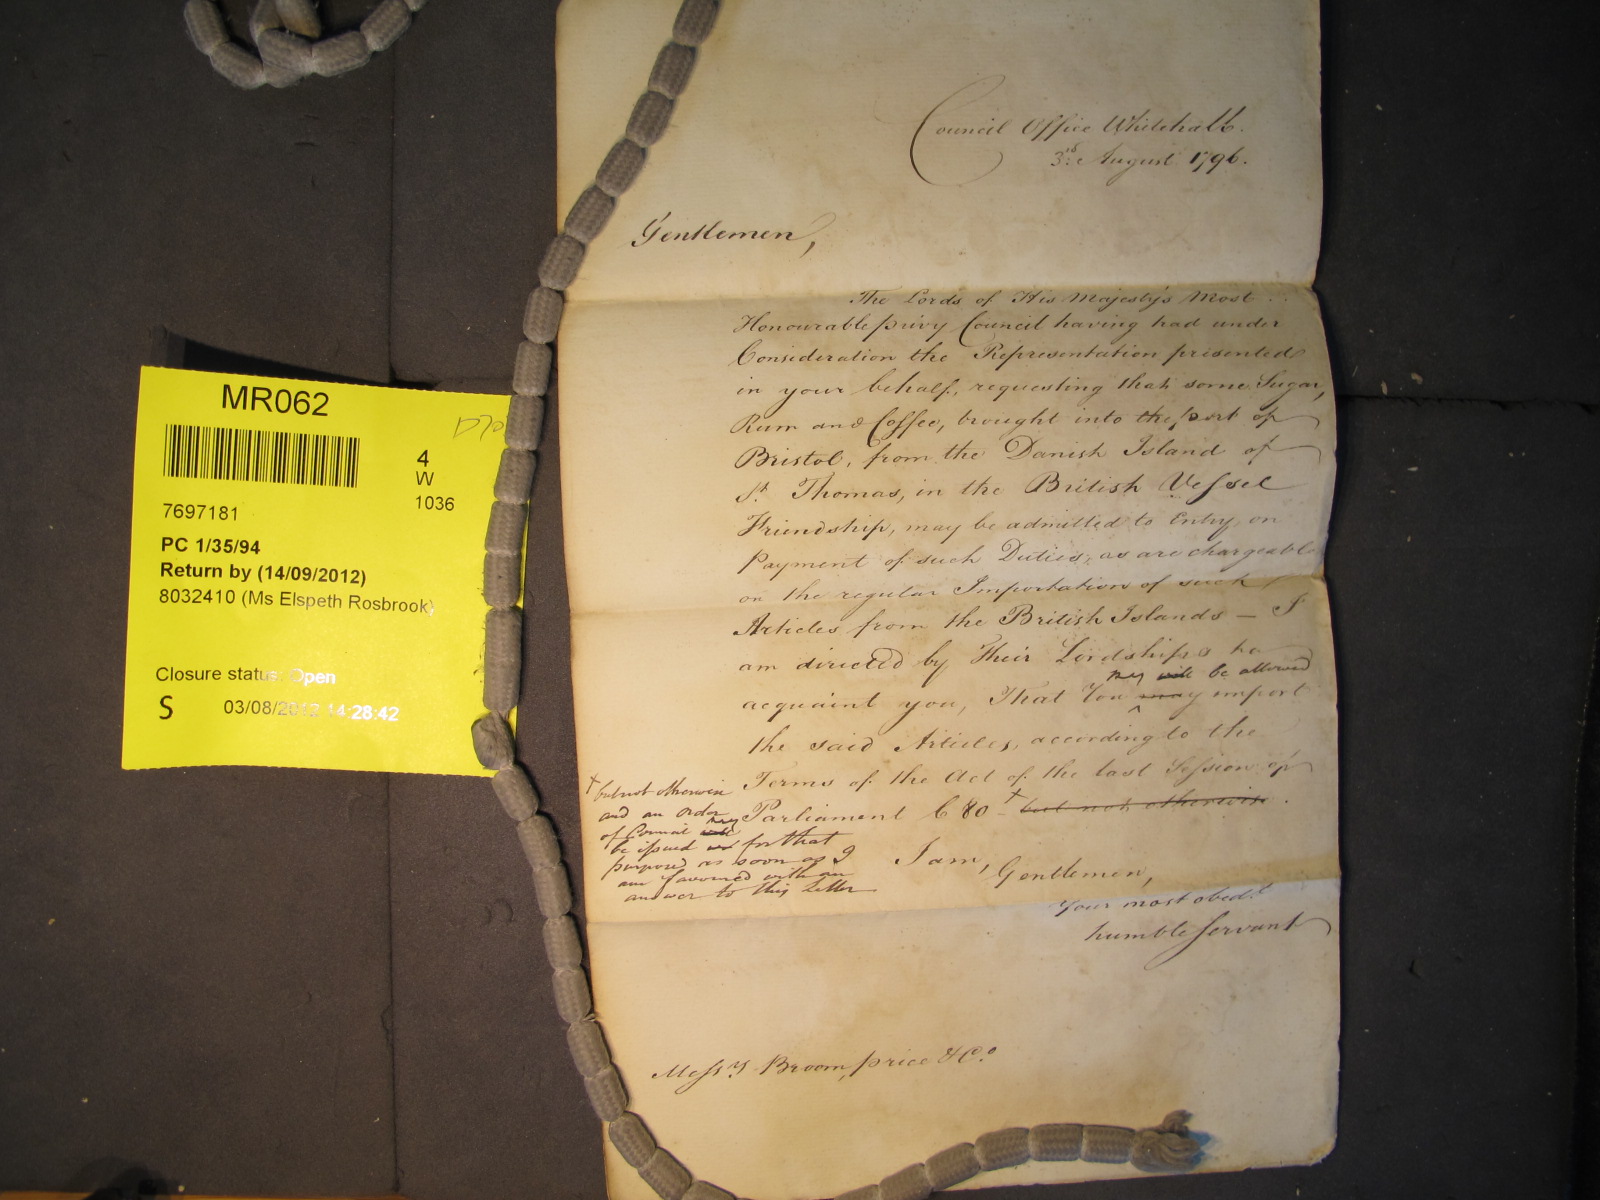 MR062
4
W
1036
7697181
PC 1/35/94
Return by (14/09/2012)
8032410 (Ms Elspeth Rosbrook)
Closure status: Open
S 03/08/2012 14:28:42
Council Office Whitehall.
3.d August 1796.
Gentlemen,
The Lords of His Majesty's Most
Honourable privy Council having had under
Consideration the Representation presented
in your behalf, requesting that some Sugar,
Rum and Coffee, brought into the port of
Bristol, from the Danish Island of
St. Thomas, in the British Vessel
Friendship, may be admitted to Entry, on
Payment of such Duties, as are chargeable
on the regular Importation of such
Articles from the British Islands — I
am directed by Their Lordships to
may will be allowed
acquaint you, That You may import
^
the said Articles, according to the
Terms of the Act of the last Session of
Parliament C 80 + but not otherwise.
+ but not otherwise
and an order
of Council may will
be issued for that
purpose as soon as I
am favoured with an
answer to this Letter
I am, Gentlemen,
Your most obed.t
humble Servant
Mess.rs Broom, price & C.o